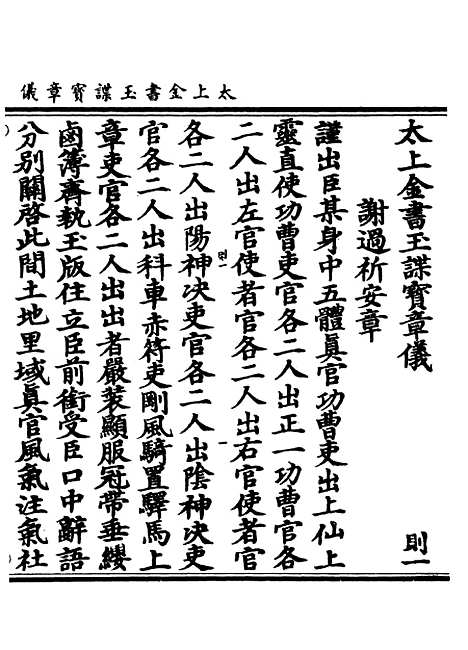 太上金書玉諜寳章儀
太上金書玉諜寳章儀 則一
謝過祈安章
謹出臣某身中五體眞官功曹吏出上仙上
靈直使功曹吏官各二人出正一功曹官各
二人出左官使者官各二人出右官使者官
各二人出陽神决吏官各二人出陰神决吏
官各二人出科車赤符吏剛風騎置驛馬上
章吏官各二人出出者嚴裝顯服冠帶垂纓
鹵簿齊執玉版住立臣前銜受臣口中辭語
分別關啓此間土地里域眞官風氣注氣社